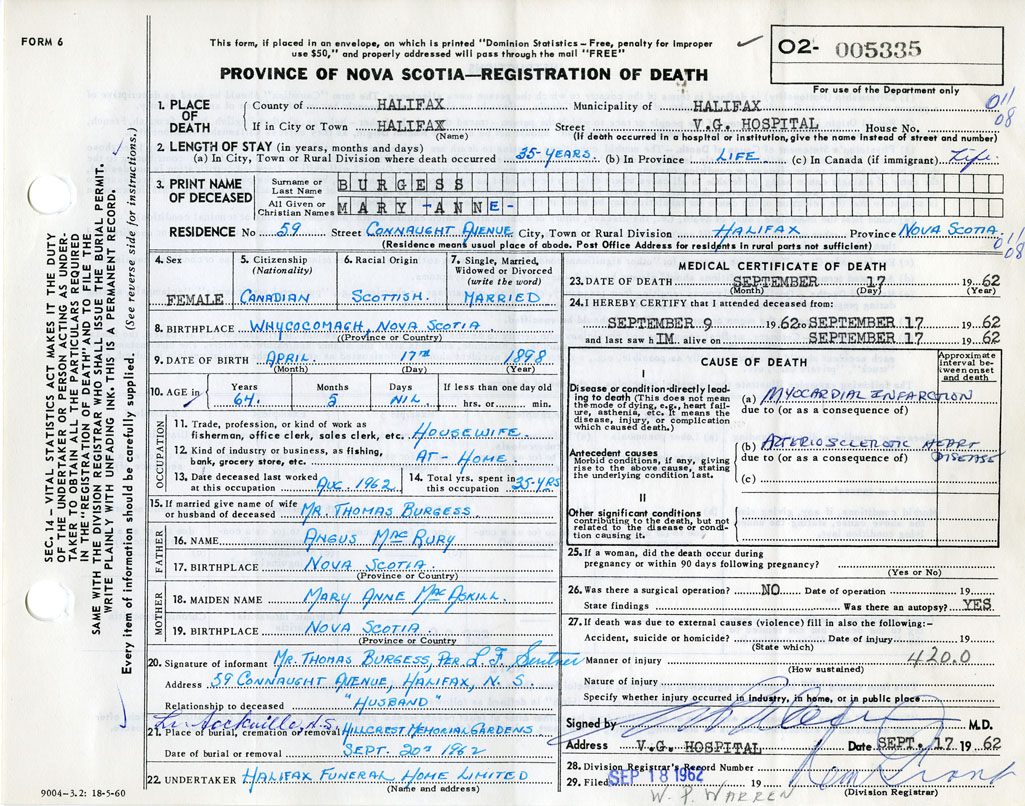 FORM 6
This form, if placed in an envelope, on which is printed "Dominion Statistics - Free, penalty for improper
use $50," and properly addressed will pass through the mail "FREE"
O2- 005335
PROVINCE OF NOVA SCOTIA—REGISTRATION OF DEATH
For use of the Department only
1. PLACE OF DEATH
County of HALIFAX Municipality of HALIFAX
011/08
If in City or Town HALIFAX Street V.G. HOSPITAL House No.
(Name) (If death occurred in a hospital or institution, give the name instead of street and number)
2. LENGTH OF STAY (in years, months and days)
(a) In City, Town or Rural Division where death occurred 35-YEARS. (b) In Province LIFE (c) In Canada (if immigrant) Life.
3. PRINT NAME OF DECEASED
Surname or Last Name BURGESS
All Given or Christian Names MARY-ANNE-
RESIDENCE No 59 Street CONNAUGHT AVENUE City, Town or Rural Division HALIFAX Province NOVA SCOTIA.
(Residence means usual place of abode. Post Office Address for residents in rural parts not sufficient)
011/08
4. Sex
FEMALE
5. Citizenship
(Nationality)
CANADIAN
6. Racial Origin
SCOTTISH.
7. Single, Married,
Widowed or Divorced
(write the word)
MARRIED
8. BIRTHPLACE WHYCOCOMAGH, NOVA SCOTIA
(Province or Country)
9. DATE OF BIRTH APRIL. 17TH 1898
(Month) (Day) (Year)
10. AGE in
Years Months Days If less than one day old
64. 5 NIL hrs. or min.
OCCUPATION
11. Trade, profession, or kind of work as
fisherman, office clerk, sales clerk, etc. HOUSEWIFE.
12. Kind of industry or business, as fishing,
bank, grocery store, etc. AT-HOME.
13. Date deceased last worked
at this occupation AUG. 1962
14. Total yrs. spent in
this occupation 35-YRS
15. If married give name of wife
or husband of deceased MR. THOMAS BURGESS.
FATHER
16. NAME ANGUS MACRURY
17. BIRTHPLACE NOVA SCOTIA.
(Province or Country)
MOTHER
18. MAIDEN NAME MARY ANNE MACASKILL.
19. BIRTHPLACE NOVA SCOTIA.
(Province or Country
20. Signature of informant MR. THOMAS BURGESS, PER L F
Address 59 CONNAUGHT AVENUE, HALIFAX, N. S.
Relationship to deceased "HUSBAND"
Sackville, N.S.
21. Place of burial, cremation or removal HILLCREST MEMORIAL GARDENS
Date of burial or removal SEPT. 20th 1962
22. UNDERTAKER HALIFAX FUNERAL HOME LIMITED
(Name and address)
9004-3.2: 18-5-60
MEDICAL CERTIFICATE OF DEATH
23. DATE OF DEATH SEPTEMBER 17 1962
(Month) (Day) (Year)
24. I HEREBY CERTIFY that I attended deceased from:
SEPTEMBER 9 1962 to SEPTEMBER 17 1962
and last saw hIM alive on SEPTEMBER 17 1962
CAUSE OF DEATH
Approximate
interval be-
tween onset
and death
I
Disease or condition directly lead-
ing to death (This does not mean
the mode of dying, e.g., heart fail-
ure, asthenia, etc. It means the
disease, injury, or complication
which caused death.)
(a) MYOCARDIAL INFARCTION
due to (or as a consequence of)
Antecedent causes
Morbid conditions, if any, giving
rise to the above cause, stating
the underlying condition last.
(b) ARTERIOSCLEROTIC HEART DISEASE
due to (or as a consequence of)
(c)
II
Other significant conditions
contributing to the death, but not
related to the disease or condi-
tion causing it.
25. If a woman, did the death occur during
pregnancy or within 90 days following pregnancy?
(Yes or No)
26. Was there a surgical operation? NO Date of operation 19
State findings Was there an autopsy? YES
27. If death was due to external causes (violence) fill in also the following:-
Accident, suicide or homicide? Date of injury 19
(State which)
Manner of injury 420.0
(How sustained)
Nature of injury
Specify whether injury occurred in industry, in home, or in public place
Signed by M.D.
Address V.G. HOSPITAL Date SEPT. 17 1962
28. Division Registrar's Record Number
29. Filed SEP 18 1962 19
(Division Registrar)
W. P. WARREN
SEC. 14 - VITAL STATISTICS ACT MAKES IT THE DUTY
OF THE UNDERTAKER OR PERSON ACTING AS UNDER-
TAKER TO OBTAIN ALL THE PARTICULARS REQUIRED
IN THE "REGISTRATION OF DEATH" AND TO FILE THE
SAME WITH THE DIVISION REGISTRAR WHO SHALL ISSUE THE BURIAL PERMIT.
WRITE PLAINLY WITH UNFADING INK. THIS IS A PERMANENT RECORD.
Every item of information should be carefully supplied. (See reverse side for instructions.)